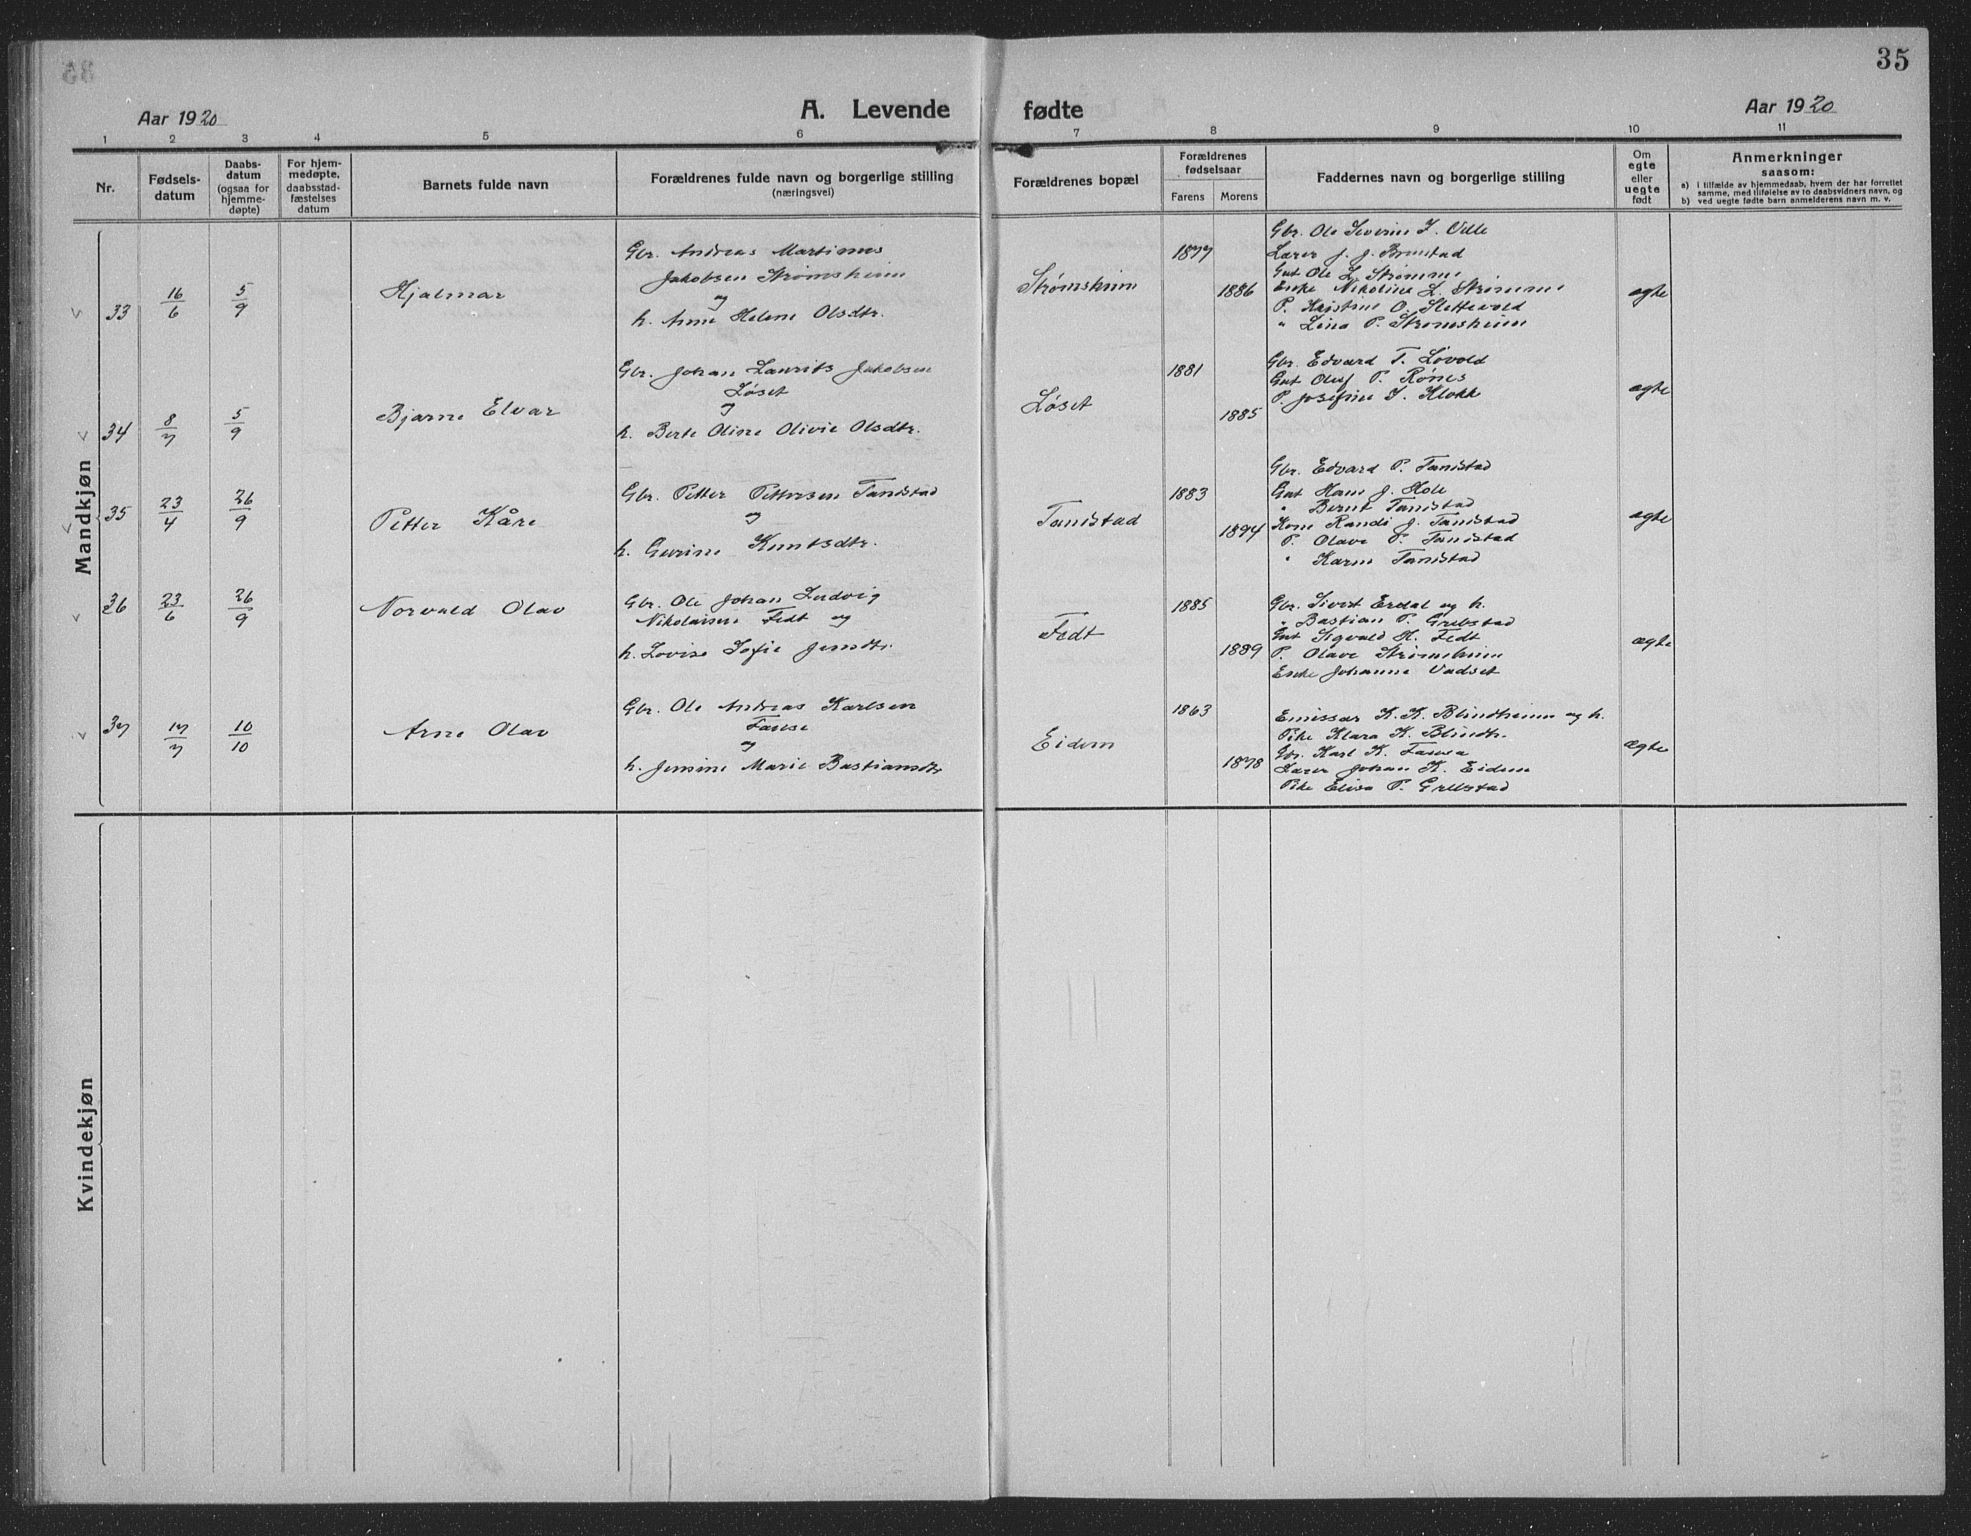 35
Aar 1920
A. Levende fødte
Aar 1920
1 2 3 4 5 6 7 8 9 10 11
Nr.
Fødsels-
datum
Daabs-
datum
(ogsaa for
hjemme-
døpte)
For hjem-
medøpte,
daabsstad-
fæstelses
datum
Barnets fulde navn
Forældrenes fulde navn og borgerlige stilling
(næringsvei)
Forældrenes bopæl
Forældrenes
fødselsaar
Farens Morens
Faddernes navn og borgerlige stilling
Om
egte
eller
uegte
født
Anmerkninger
saasom:
a) i tilfælde av hjemmedaab, hvem der har forrettet
samme, med tilføielse av to daabsvidners navn, og
b) ved uegte fødte barn anmelderens navn m. v.
Mandkjøn
33
16/6
5/9
Hjalmar
Gbr. Andreas Martinus
Jakobsen Strømsheim
og
h. Anne Helene Olsdtr.
Strømsheim
1877
1886
Gbr. Ole Severin I. Ulle
Lærer J. J.
Gut Ole L. Strømme
Enke Nikoline L. Strømme
P. Kristine O. Slettevold
" Lina P. Strømsheim
egte
34
8/7
5/9
Bjarne Elvar
Gbr. Johan Laurits Jakobsen
Løset
og
h. Berte Oline Olivie Olsdtr.
Løset
1881
1885
Gbr. Edvard T. Løvold
Gut Oluf P. Rønes
P. Josefine I. Klokk
egte
35
23/4
26/9
Petter Kåre
Gbr. Petter Pettersen Tandstad
og
h. Gurine Knutsdtr.
Tandstad
1883
1894
Gbr. Edvard P. Tandstad
Gut Hans J. Hole
" Bernt Tandstad
Kone Randi J. Tandstad
P. Olave P. Tandstad
" Karen Tandstad
egte
36
23/6
26/9
Norvald Olav
Gbr. Ole Johan Ludvig
Nikolaisen Fedt og
h. Lovise Sofie Jensdtr.
Fedt
1885
1889
Gbr. Sivert Erdal og h.
" Bastian P. Grebstad
Gut Sigvald H. Fedt
P. Olave Strømsheim
Enke Johanne Vadset
ægte
37
17/7
10/10
Arne Olav
Gbr. Ole Andreas Karlsen
og
h. Jensine Marie Bastiansdtr
Eidem
1863
1878
Emissær K. K. Blindheim og h.
Pike Klara K. Blindh.
Gbr. Karl K.
Lærer Johan K. Eidem
Pike Elisa P. Grebstad
ægte
Kvindekjøn